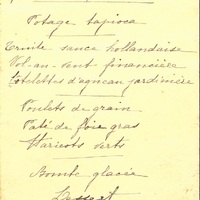 Potage tapioca
Truite sauce hollandaise
Vol-au-vent financière
Cotelettes d'agneau jardinière
Poulets de grain
Paté de foie gras
Haricots verts
Bombe glacée
Dessert